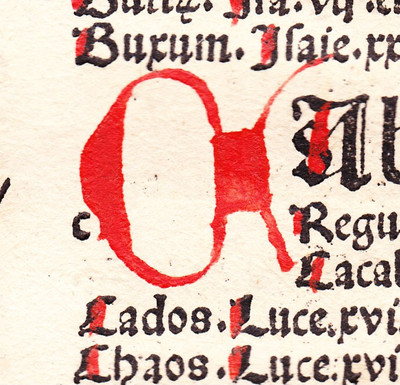 Buxum. Isaie.xx
CAb
c Regu
Cacab
Cados. Luce.xvi
Chaos. Luce.xvi